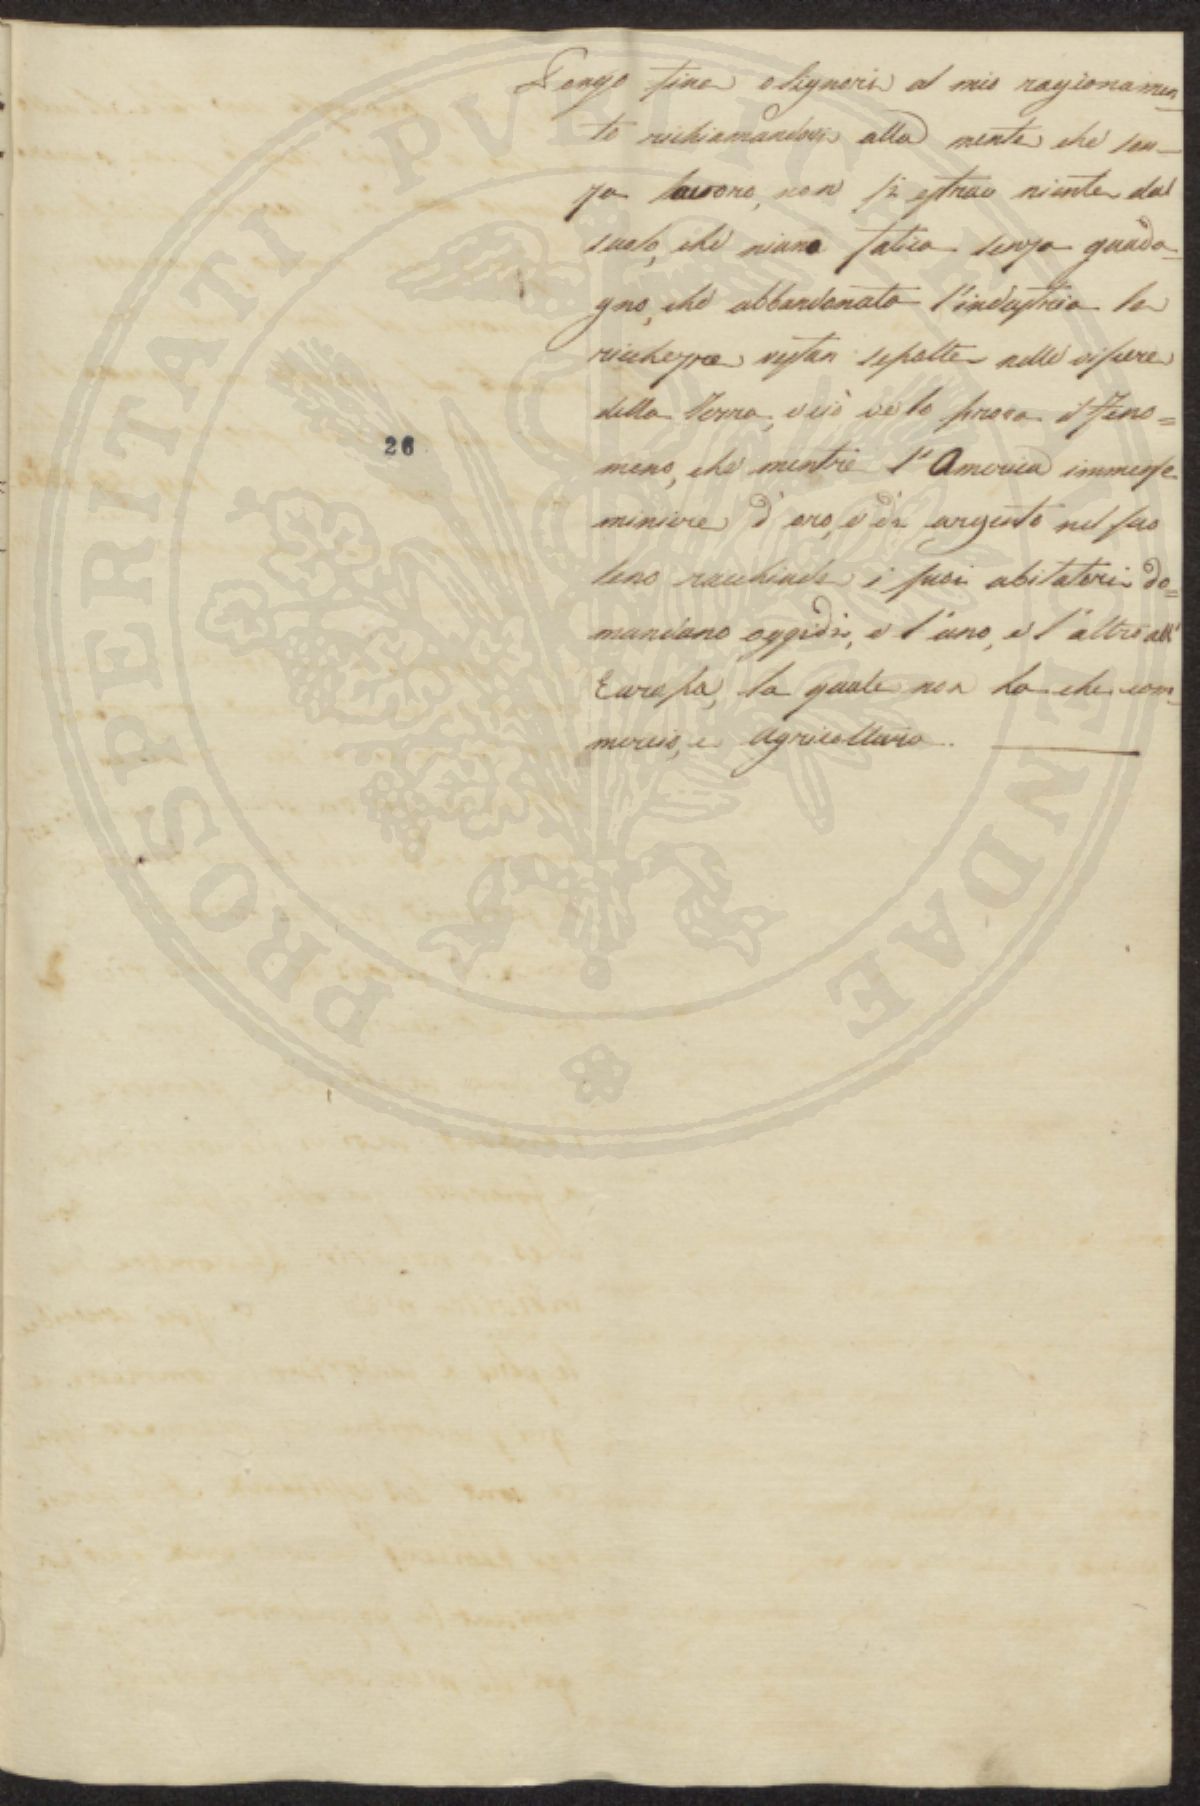 Pongo fine o Signori al mio ragionamen-
to richiamandovi alla mente che sen-
za lavoro, non si estrae niente dal
suolo, che niuno fatica senza guada-
gno, che abbandonata l'industria le
ricchezze restan sepolte nelle viscere
della Terra, e ciò ve lo prova il Feno=
meno, che mentre l'America immense
miniere d'oro, e di argento nel suo
seno racchiude i suoi abitatori do=
mandano oggidì, e l'uno, e l'altro all'
Europa, la quale non ha che com-
mercio, e Agricoltura.
26
PROSPERITATI PVBLICAE AVGENDAE